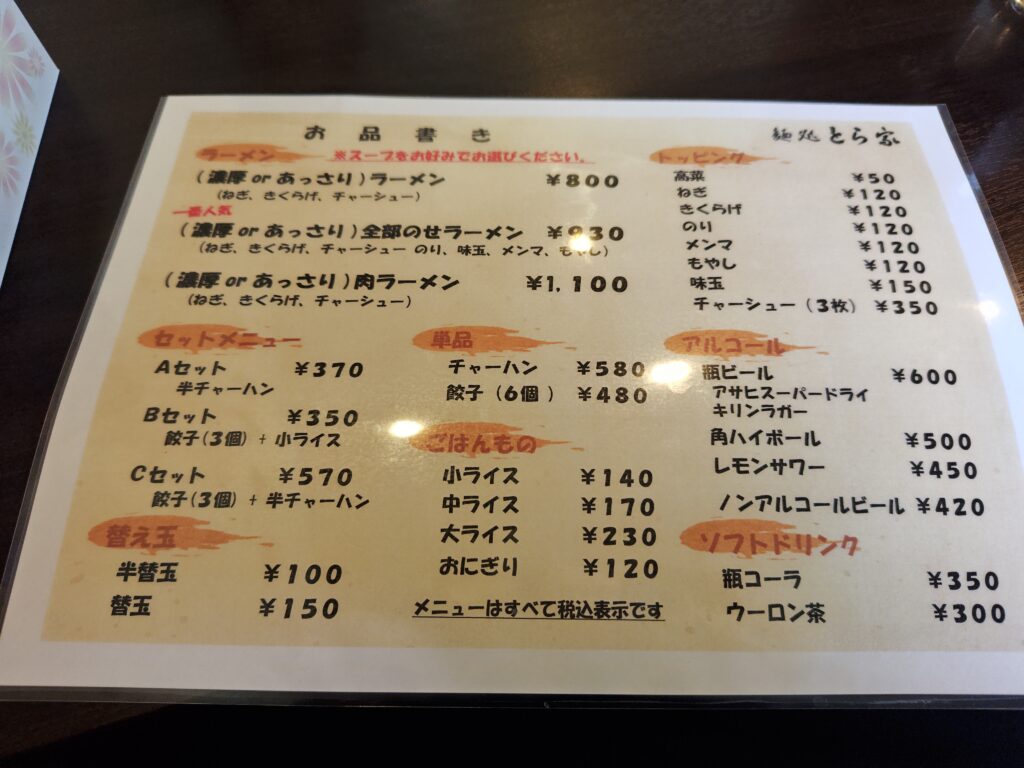 お品書き
麺処 とら家
ラーメン ※スープをお好みでお選びください。
(濃厚 or あっさり)ラーメン ¥800
(ねぎ、きくらげ、チャーシュー)
一番人気
(濃厚 or あっさり)全部のせラーメン
(ねぎ、きくらげ、チャーシュー のり、味玉、メンマ、もやし)
(濃厚 or あっさり)肉ラーメン ¥1,100
(ねぎ、きくらげ、チャーシュー)
トッピング
高菜 ¥50
ねぎ ¥120
きくらげ ¥120
のり ¥120
メンマ ¥120
もやし ¥120
味玉 ¥150
チャーシュー(3枚) ¥350
セットメニュー
Aセット ¥370
半チャーハン
Bセット ¥350
餃子(3個) + 小ライス
Cセット ¥570
餃子(3個) + 半チャーハン
替え玉
半替玉 ¥100
替玉 ¥150
単品
チャーハン ¥580
餃子(6個) ¥480
ごはんもの
小ライス ¥140
中ライス ¥170
大ライス ¥230
おにぎり ¥120
メニューはすべて税込表示です
アルコール
瓶ビール ¥600
アサヒスーパードライ
キリンラガー
角ハイボール ¥500
レモンサワー ¥450
ノンアルコールビール ¥420
ソフトドリンク
瓶コーラ ¥350
ウーロン茶 ¥300